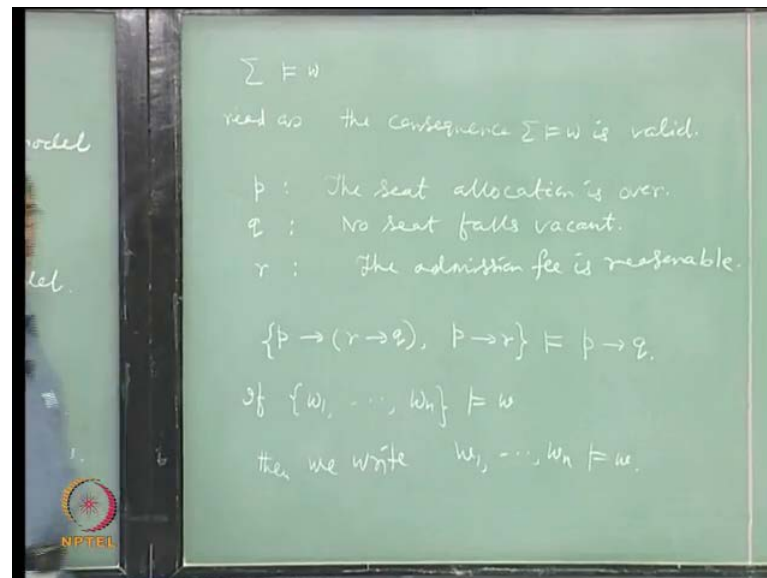 Σ ⊨ w
read as the consequence Σ ⊨ w is valid.
p : The seat allocation is over.
q : No seat falls vacant.
r : The admission fee is reasonable.
{p → (r → q), p → r} ⊨ p → q.
If {w₁, ..., wₙ} ⊨ w
then we write w₁, ..., wₙ ⊨ w.
model
del.
NPTEL